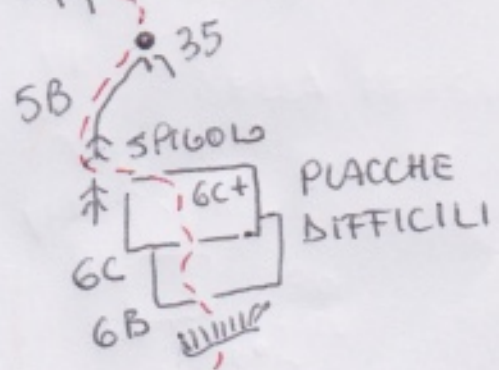 35
5B
SPIGOLO
6C+
PLACCHE
DIFFICILI
6C
6B